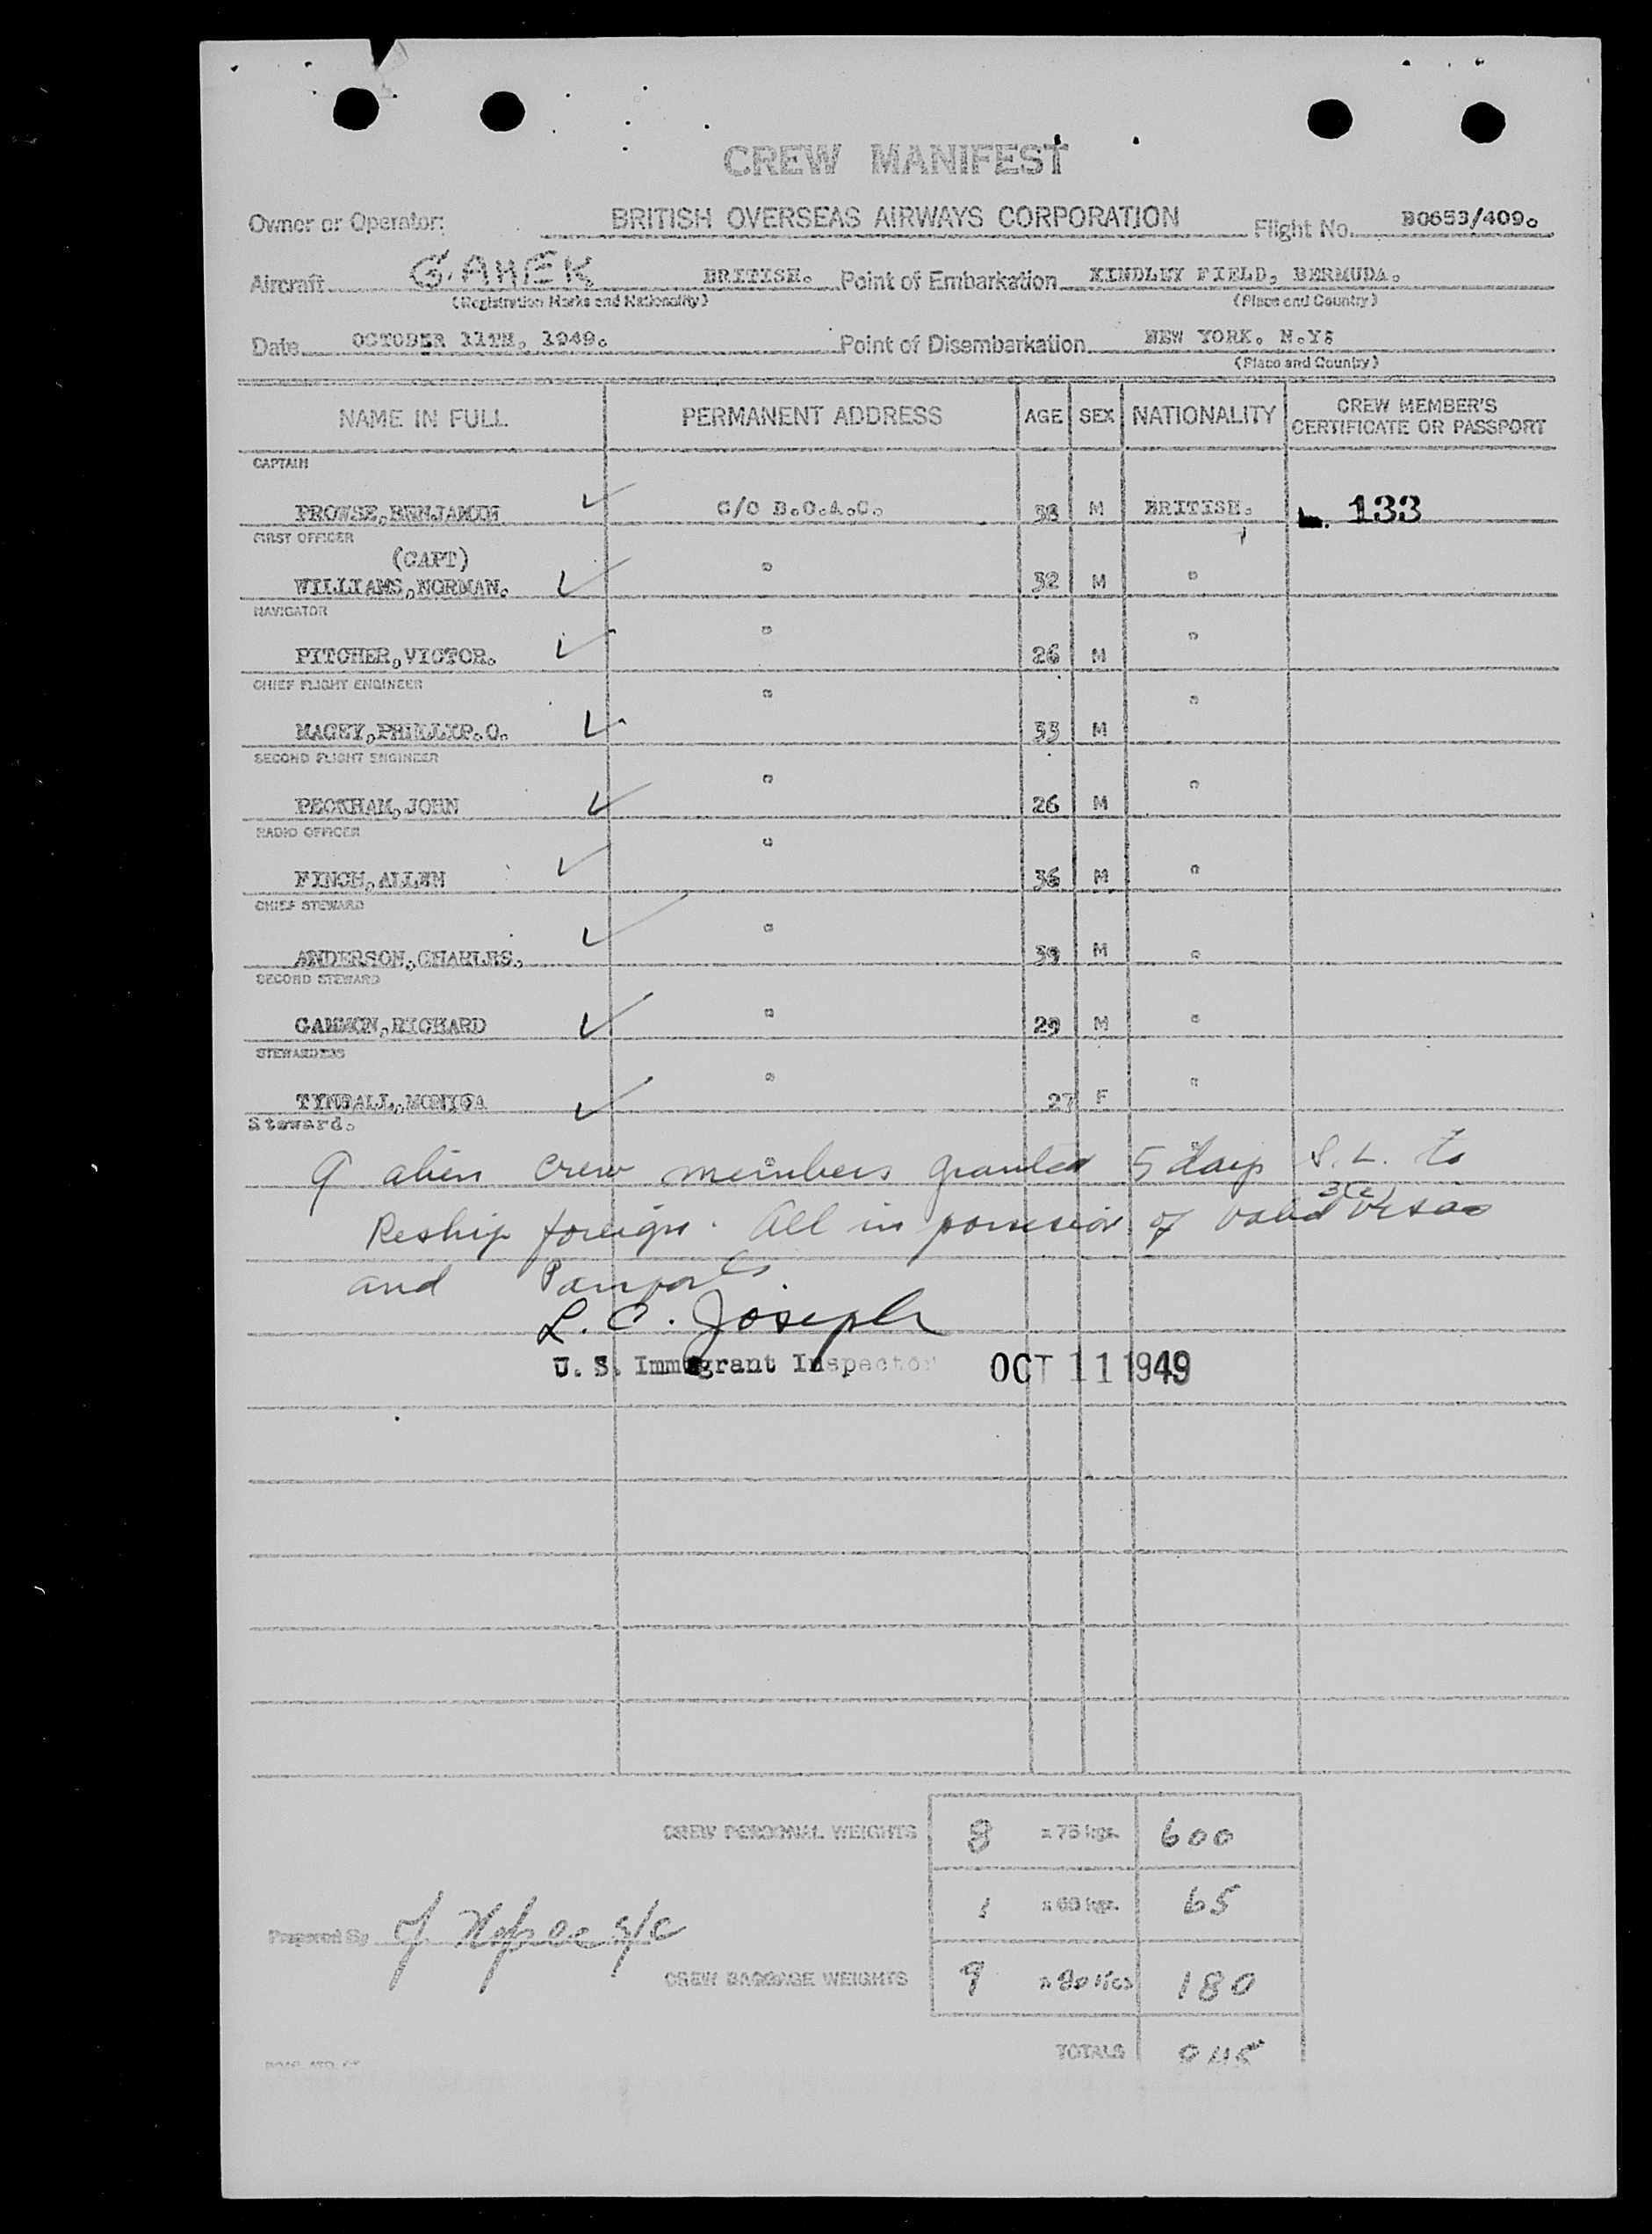 CREW MANIFEST
Owner or Operator: BRITISH OVERSEAS AIRWAYS CORPORATION Flight No. BO653/409.
Aircraft G.AHEK BRITISH. Point of Embarkation KINDLEY FIELD, BERMUDA.
(Registration Marks and Nationality) (Place and Country)
Date OCTOBER 11TH, 1949. Point of Disembarkation NEW YORK. N.Y.
(Place and Country)
NAME IN FULL PERMANENT ADDRESS AGE SEX NATIONALITY CREW MEMBER'S CERTIFICATE OR PASSPORT
CAPTAIN
PROWSE,BENJAMIN ✓ C/O B.O.A.C. 38 M BRITISH. 133
FIRST OFFICER
(CAPT)
WILLIAMS,NORMAN. ✓ " 32 M "
NAVIGATOR
PITCHER,VICTOR. ✓ " 26 M "
CHIEF FLIGHT ENGINEER
MACEY,PHILLIP.O. ✓ " 33 M "
SECOND FLIGHT ENGINEER
PECKHAM,JOHN ✓ " 26 M "
RADIO OFFICER
FINCH,ALLEN ✓ " 36 M "
CHIEF STEWARD
ANDERSON,CHARLES. ✓ " 39 M "
SECOND STEWARD
GAMMON,RICHARD ✓ " 29 M "
STEWARDESS
TYNDALL,MONICA ✓ " 27 F "
Steward.
9 alien crew members granted 5 days S.L. to
Reship foreign. All in possession of valid 3(2) visas
and Passports
L. C. Joseph
U. S. Immigrant Inspector OCT 11 1949
CREW PERSONAL WEIGHTS 8 x 75 kgs. 600
1 x 65 kgs. 65
Prepared By
CREW BAGGAGE WEIGHTS 9 x 20 Kgs 180
TOTALS 845